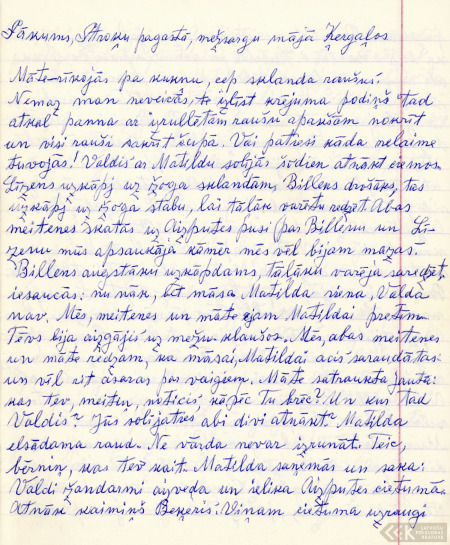 Sākums, Stroķu pagastā, mežsargu mājā Ķergaļos
Māte rīkojās pa kuknu, cep sklanda raušus:
Nemaz man neveicās, te izlīst krējuma podiņš Tad
atkal panna ar izrullētām raušu apakšām nokrīt
un visi rauši sakrīt čupā. Vai patiesi kāda nelaime
tuvojās! Valdis ar Matildu solījās šodien atnākt ciemos.
Lizens uzkāpj uz žoga sklandām, Billens drošāks, tas
uzkāpj uz žoga stabu, lai tālāk varētu redzēt. Abas
meitenes skatās uz Aizputes pusi (par Billenu un Li-
zenu mūs apsaukāja kāmēr mēs vēl bijām mazas.
Billens augstāku uzkāpdams, tālāku varēja saredzēt,
iesaucās: nu nāk, bet māsa Matilda viena, Valda
nav. Mēs, meitenes un māte ejam Matildai pretim.
Tēvs bija aizgājis uz mežu klaušos. Mēs, abas meitenes
un māte redzam, ka māsai, Matildai acis saraudātas
un vēl rit asaras par vaigiem. Māte satraukta jautā:
kas tev, meitiņ, noticis, kāpēc Tu brēc? Un kur Tad
Valdis? Jūs solījāties abi divi atnākt? Matilda
elsādama raud. Ne vārda nevar izrunāt. Teic,
bērniņ, kas tev kait. Matilda saņēmās un saka:
Valdi žandarmi aizveda un ielika Aizputes cietumā.
Atnāk kaimiņš Beķeris: Viņam cietuma uzraugi
LATVIEŠU
FOLKLORAS
KRĀTUVE